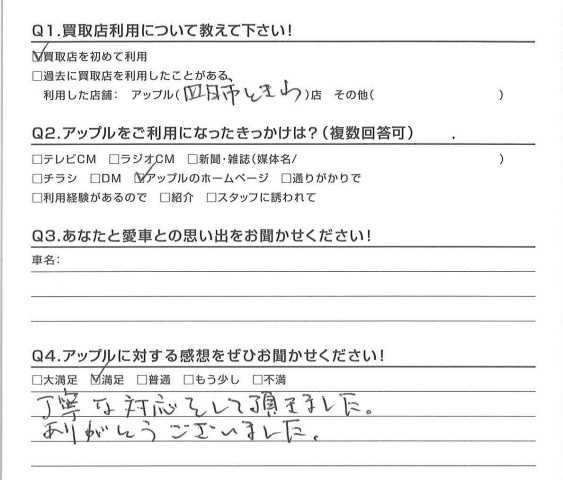 Q1.買取店利用について教えて下さい!
☑買取店を初めて利用
□過去に買取店を利用したことがある
利用した店舗: アップル(四日市ときわ)店 その他( )
Q2.アップルをご利用になったきっかけは?(複数回答可)
□テレビCM □ラジオCM □新聞・雑誌(媒体名/ )
□チラシ □DM ☑アップルのホームページ □通りがかりで
□利用経験があるので □紹介 □スタッフに誘われて
Q3.あなたと愛車との思い出をお聞かせください!
車名:
Q4.アップルに対する感想をぜひお聞かせください!
□大満足 ☑満足 □普通 □もう少し □不満
丁寧な対応をして頂きました。
ありがとうございました。